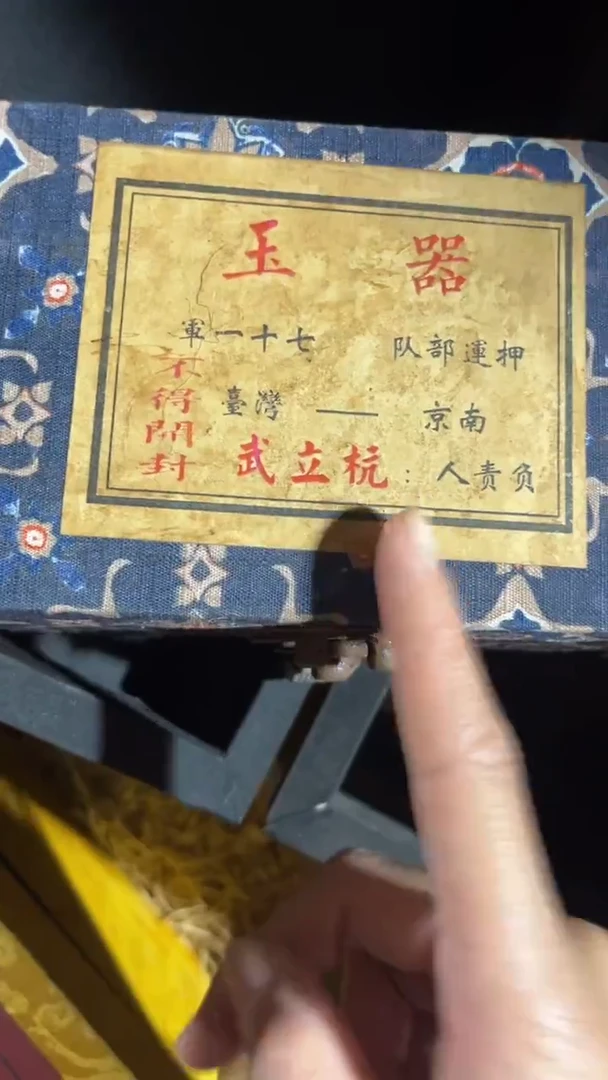 玉器
押運部队 七十一軍
南京 — 臺灣
负責人：杭立武
不得開封